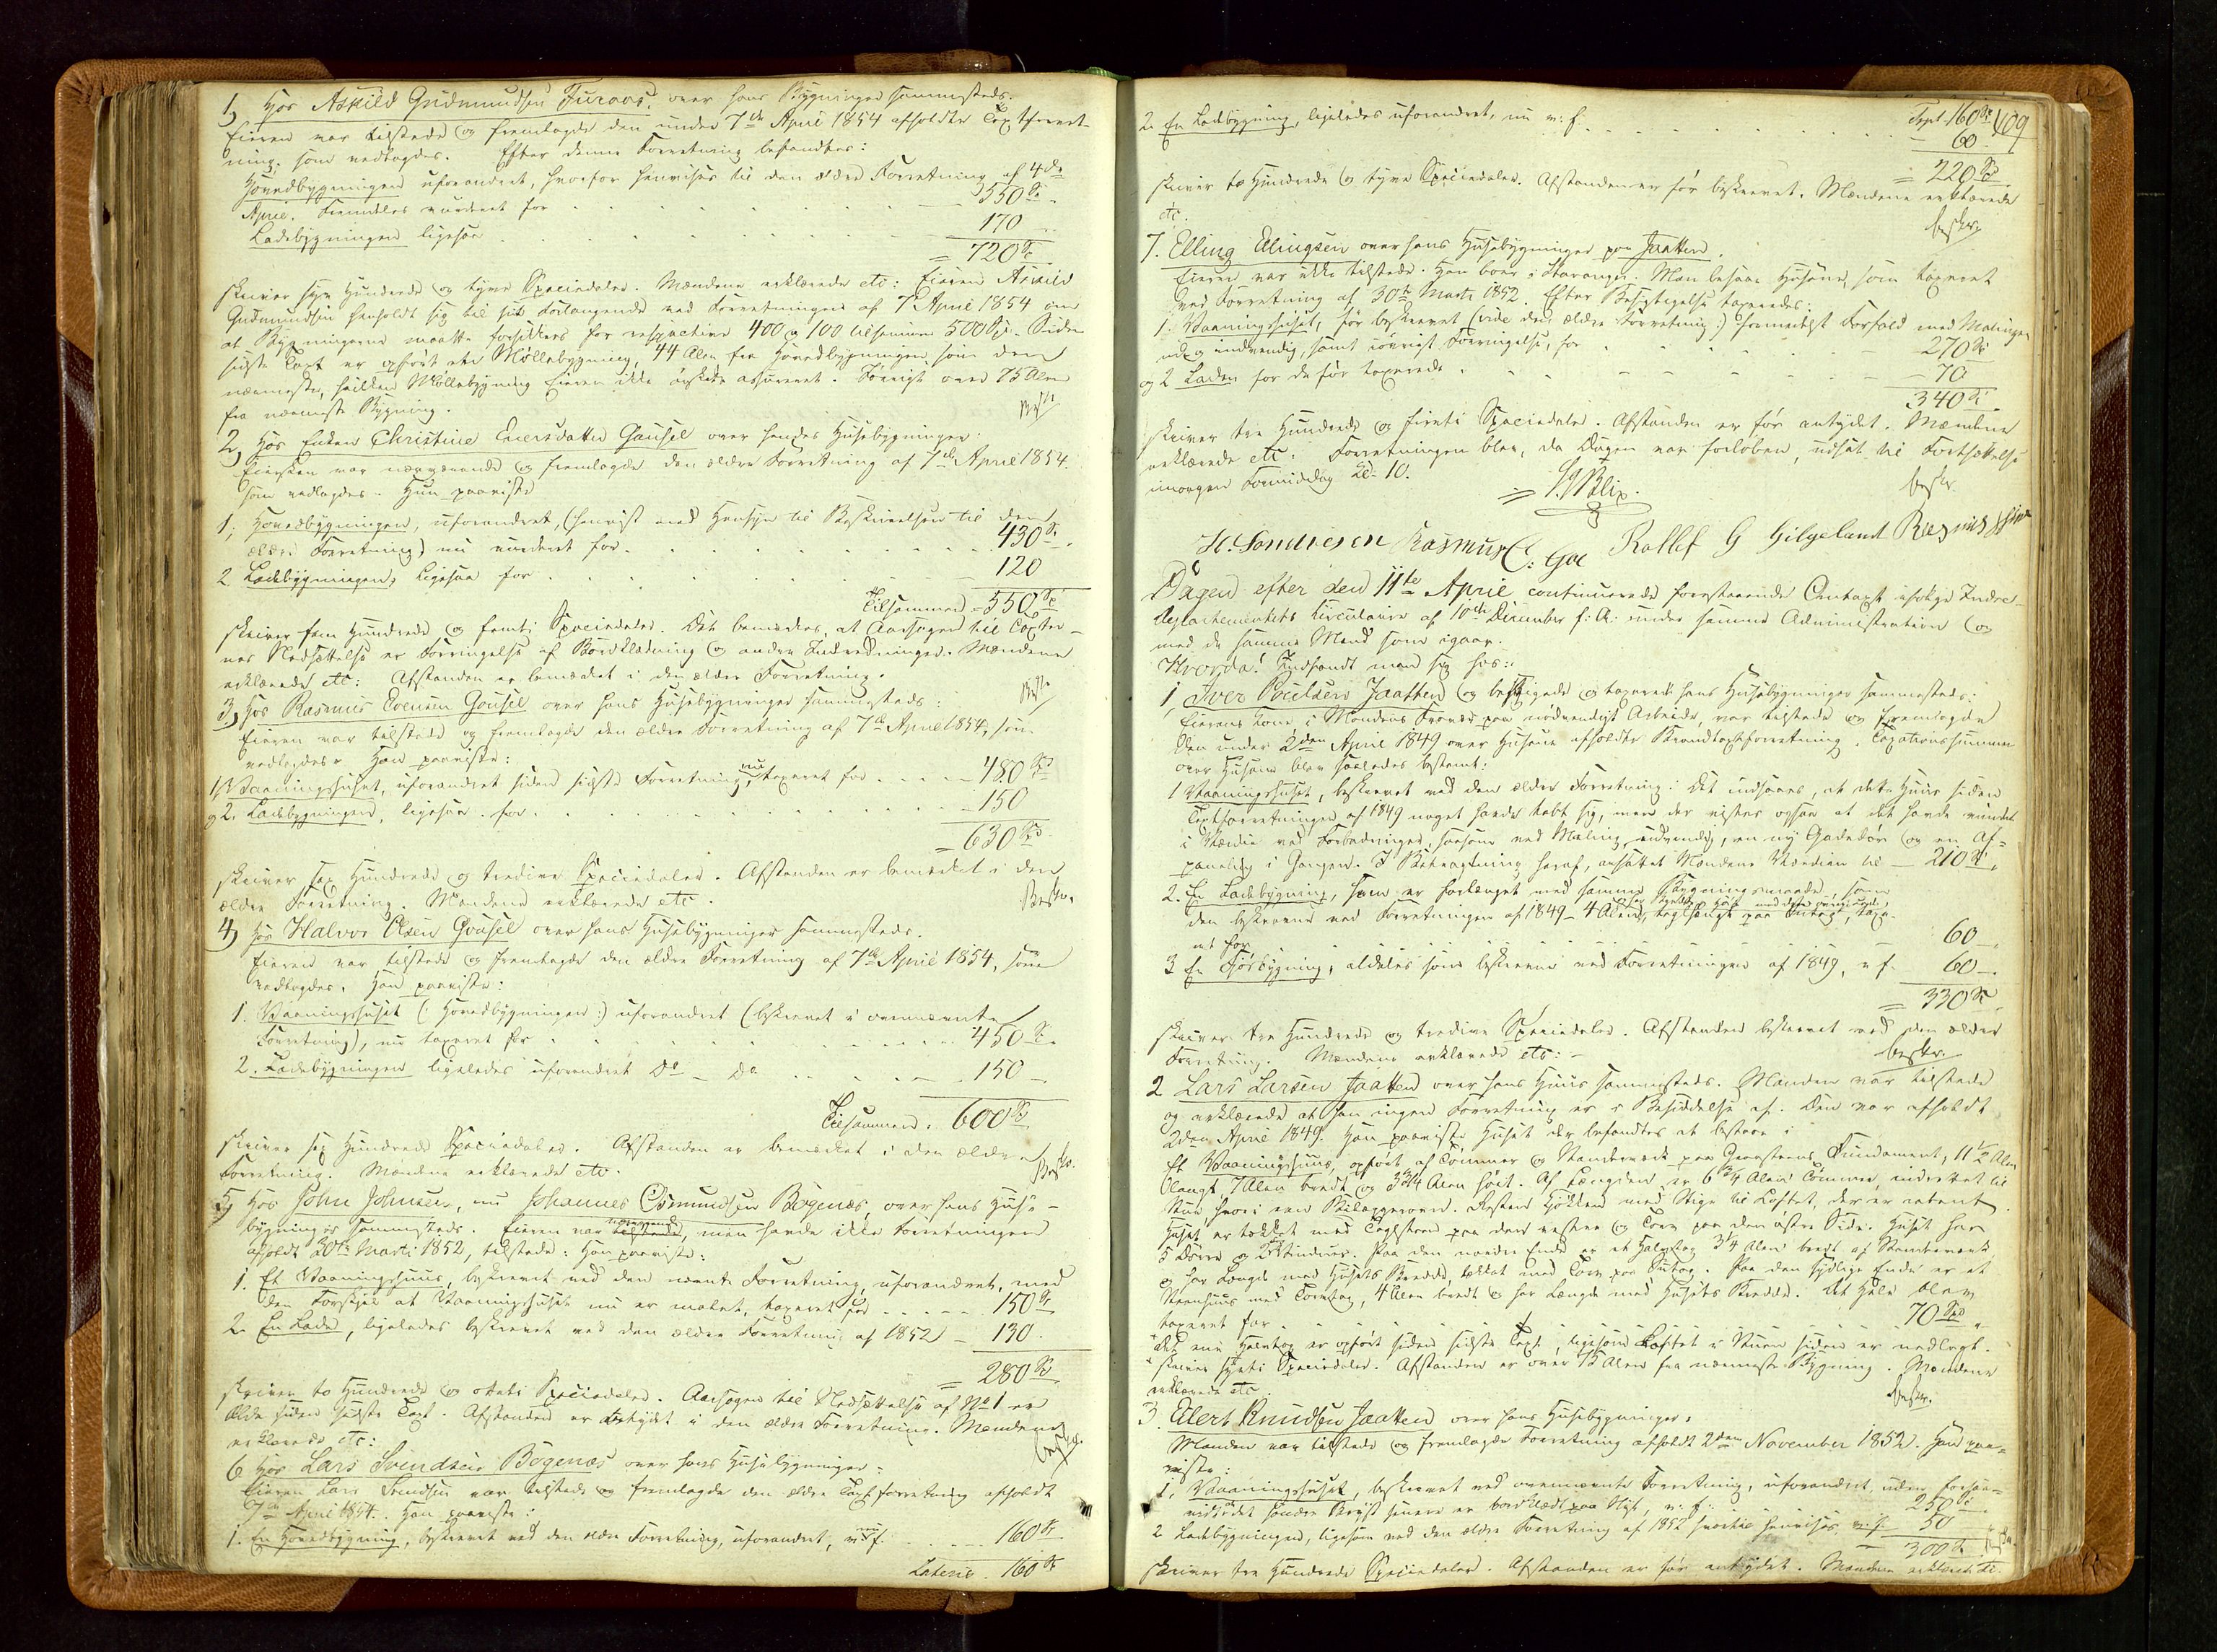 1, Hos Askild Gudmundsen Furaas, over hans Bygninger sammesteds.
Eieren var tilstede og fremlagde den under 7de April 1854 afholdte Taxtforret-
ning, som vedtoges. Efter denne Forretning befandtes:
Hovedbygningen uforandret, hvorfor henvises til den ældre Forretning af 4de
April. Fremdeles vurderet for 550 Sp.
Ladebygningen ligesaa 170
= 720 Sp.
skriver syv Hundrede og tyve Speciedaler. Mændene erklærede etc: Eieren Askild
Gudmundsen henholdt sig til sit Forlangende ved Forretningen af 7de April 1854 om
at Bygningerne maatte forsikkres for respective 400 og 100 tilsammen 500 Spd. Siden
sidste Taxt er opført en Møllebygning, 44 Alen fra Hovedbygningen, som den
nærmeste, hvilken Møllebygning Eieren ikke ønskede assureret. Forøvrigt over 75 Alen
fra nærmeste Bygning.
2, Hos Enken Christine Eversdatter Gausel over hendes Huusebygninger.
Eiersken var nærværende og fremlagde den ældre Forretning af 7de April 1854.
som vedtoges. Hun paaviste
1, Hovedbygningen, uforandret, (henvist med Hensyn til Beskrivelsen til den
ældre Forretning) nu vurderet for 430 Sp.
2 Ladebygningen, ligesaa for 120
Tilsammen = 550 Sp.
skriver fem Hundrede og femti Speciedaler. Det bemærkes, at Aarsagen til Taxter-
nes Nedsættelse er Forringelse af Bordklædning og andre Indredninger. Mændene
erklærede etc: Afstanden er bemærket i den ældre Forretning.
3, Hos Rasmus Evensen Gousel over hans Huusebygninger sammesteds:
Eieren var tilstede og fremlagde den ældre Forretning af 7de April 1854, som
vedtoges. Han paaviste:
1, Vaaningshuset, uforandret siden sidste Forretning, nu taxeret for 480 Spd
og 2. Ladebygningen, ligesaa for 150
= 630 Spd.
skriver sex Hundrede og tredive Speciedaler. Afstanden er bemærket i den
ældre Forretning. Mændene erklærede etc.
4, Hos Halvor Olsen Gousel over hans Huusebygninger sammesteds.
Eieren var tilstede og fremlagde den ældre Forretning af 7de April 1854, som
vedtoges. Han paaviste:
1. Vaaningshuset (: Hovedbygningen :) uforandret (beskrevet i ovennævnte
Forretning), nu taxeret for 450 Sp.
2. Ladebygningen ligeledes uforandret Do – Do 150
Tilsammen. 600 Sp
skriver sex Hundrede Speciedaler. Afstanden er bemærket i den ældre
Forretning. Mændene erklærede etc.
5, Hos John Johnsen, nu Johannes Osmundsen Bøgenæs, over hans Huse-
bygninger sammesteds. Eieren var nærværende, men havde ikke Forretningen
afholdt 30te Marti 1852, tilstede: Han paaviste:
1. Et Vaaningshuus, beskrevet ved den nævnte Forretning, uforandret, med
den Forskjel at Vaaningshuset nu er malet, taxeret for 150 Sp.
2. En Lade, ligeledes beskrevet ved den ældre Forretning af 1852 – 130.
= 280 Sp
skriver to Hundrede og otteti Speciedaler. Aarsagen til Nedsættelse af No 1 er
Ælde siden sidste Taxt. Afstanden er antydet i den ældre Forretning. Mændene
erklærede etc:
6 Hos Lars Svendsen Bøgenæs over hans Husebygninger:
Eieren Lars Svendsen var tilstede og fremlagde den ældre Taxtforretning afholdt
7de April 1854. Han paaviste:
1. En Hovedbygning, beskrevet ved den ældre Forretning, uforandret, nu v. f. 160 Sp.
Lateris. 160 Sp
Tspt. 160 Sp. 409
2. En Ladebygning, ligeledes uforandret, nu v. f. 60
= 220 Sp
skriver to Hundrede og tyve Speciedaler. Afstanden er før beskrevet. Mændene erklærede
etc.
7. Elling Elingsen over hans Husebygninger paa Jaatten.
Eieren var ikke tilstede. Han boer i Stavanger. Man besaae Husene, som taxeret
ved Forretning af 30te Marts 1852. Efter Besigtigelse taxeredes:
1. Vaaningshuset, før beskrevet (vide den ældre Forretning:) formedelst Forfald med Malingen
ud og indvendig, samt iøvrigt Forringelse, for 270 Sp
og 2 Laden for de før taxerede 70
340 Sp.
skriver tre Hundrede og firti Speciedaler. Afstanden er før antydet. Mændene
erklærede etc: Forretningen blev, da Dagen var forløben, udsat til Fortsættelse
imorgen Formiddag Kl. 10.
H. Sondresen Rasmus C: Goe Rollef G Gilgelund
Dagen efter den 11te April continueredes forestaaende Omtaxt ifølge Indre-
Departementets Circulaire af 10de December f: A: under samme Administration og
med de samme Mænd som igaar.
Hvorda! Indfandt man sig hos:
1, Iver Poulsen Jaatten og besigtigede og taxerede hans Husebygninger sammesteds:
Eierens Kone i Mandens Fravær paa nødvendigt Arbeide, var tilstede og fremlagde
den under 2den April 1849 over Husene afholdte Brandtaxtforretning. Taxationssummen
over Husene blev saaledes bestemt:
1 Vaaningshuset, beskrevet ved den ældre Forretning: Det indsaaes, at dette Huus siden
Taxtforretningen af 1849 noget havde tabt sig, men der vistes ogsaa at det havde vundet
i Værdie ved Forbedringer, saasom ved Maling udvendig, en ny Gadedør og en Af-
paneling i Gangen. I Betragtning heraf, ansattes Mændene Værdien til 210 Sp.
2. En Ladebygning, som er forlænget med samme Bygningsmaade, som
den beskrevne ved Forretningen af 1849 – 4 Alen, taxe-
ret for 60 –.
3 En Fjøsbygning, aldeles som beskreven ved Forretningen af 1849, v. f. 60 –.
= 330 Sp.
skriver tre Hundrede og tredive Speciedaler. Afstanden beskrevet ved den ældre
Forretning. Mændene erklærede etc: –
2 Lars Larsen Jaatten over hans Huus sammesteds. Manden var tilstede
og erklærede at han ingen Forretning er i Besiddelse af. Den var afholdt
2den April 1849. Han paaviste Huset der befandtes at bestaae i
Et Vaaningshuus, opført af Tømmer og Standerværk paa Graasteens Fundament, 11½ Alen
langt, 7 Alen bredt og 3¾ Alen høit. Af Længden er 6¾ Alen Tømmer, indrettet til
Stue hvori een Bilæggerovn. Resten Kjøkken med Stige til Loftet, der er aabent
Huset er tækket med Taglsteen paa den vestre og Torv paa den østre Side. Huset har
5 Dørre og Vinduer. Paa den nordre Ende er et Halvtag 3¼ Alen bredt af Standerværk
og har Længde med Husets Bredde, tækket med Torv paa Sutag. Paa den sydlige Ende er et
Steenhuus med Torvtag, 4 Alen bredt og har Længde med Husets Bredde. Det Hele blev
taxeret for 70 Spd
Det ene Halvtag er opført siden sidste Taxt, ligesom Loftet i Stuen siden er nedlagt.
skriver sytti Speciedaler. Afstanden er over 75 Alen fra nærmeste Bygning. Mændene
erklærede etc.
3 Eilert Knudsen Jaatten over hans Husebygninger.
Manden var tilstede og fremlagde Forretning afholdt 2den November 1852. Han paa-
viste:
1, Vaaningshuset, beskrevet ved ovennævnte Forretning, uforandret, uden forsaa-
vidt søndre Bryst senere er bordklædt paa Nyt, v. f. 250 Sp.
2 Ladebygningen, ligesom ved den ældre Forretning af 1852 hvortil henvises, v. f. 50
= 300 Sp.
skriver tre Hundrede Speciedaler. Afstanden er før antydet. Mændene erklærede etc.